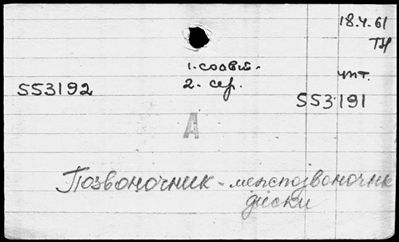 18.4.61
ТН
1. соовт.
2. сер.
чит.
553192
553191
А
Позвоночник - межпозвоночн
диски